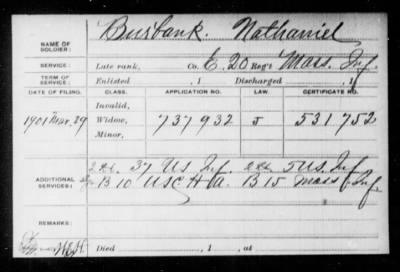 Burbank. Nathaniel
NAME OF SOLDIER:
SERVICE: Late rank, Co. E, 20 Reg't Mass. Inf.
TERM OF SERVICE: Enlisted , 1 Discharged , 1
DATE OF FILING. CLASS. APPLICATION NO. LAW. CERTIFICATE NO.
Invalid,
1901 Mar. 29 Widow, 737932 J 531752
Minor,
37 US Inf. 5 US. Inf
ADDITIONAL SERVICES: B 10 USC H A. B 15 Mass Inf.
REMARKS:
Died , 1 , at